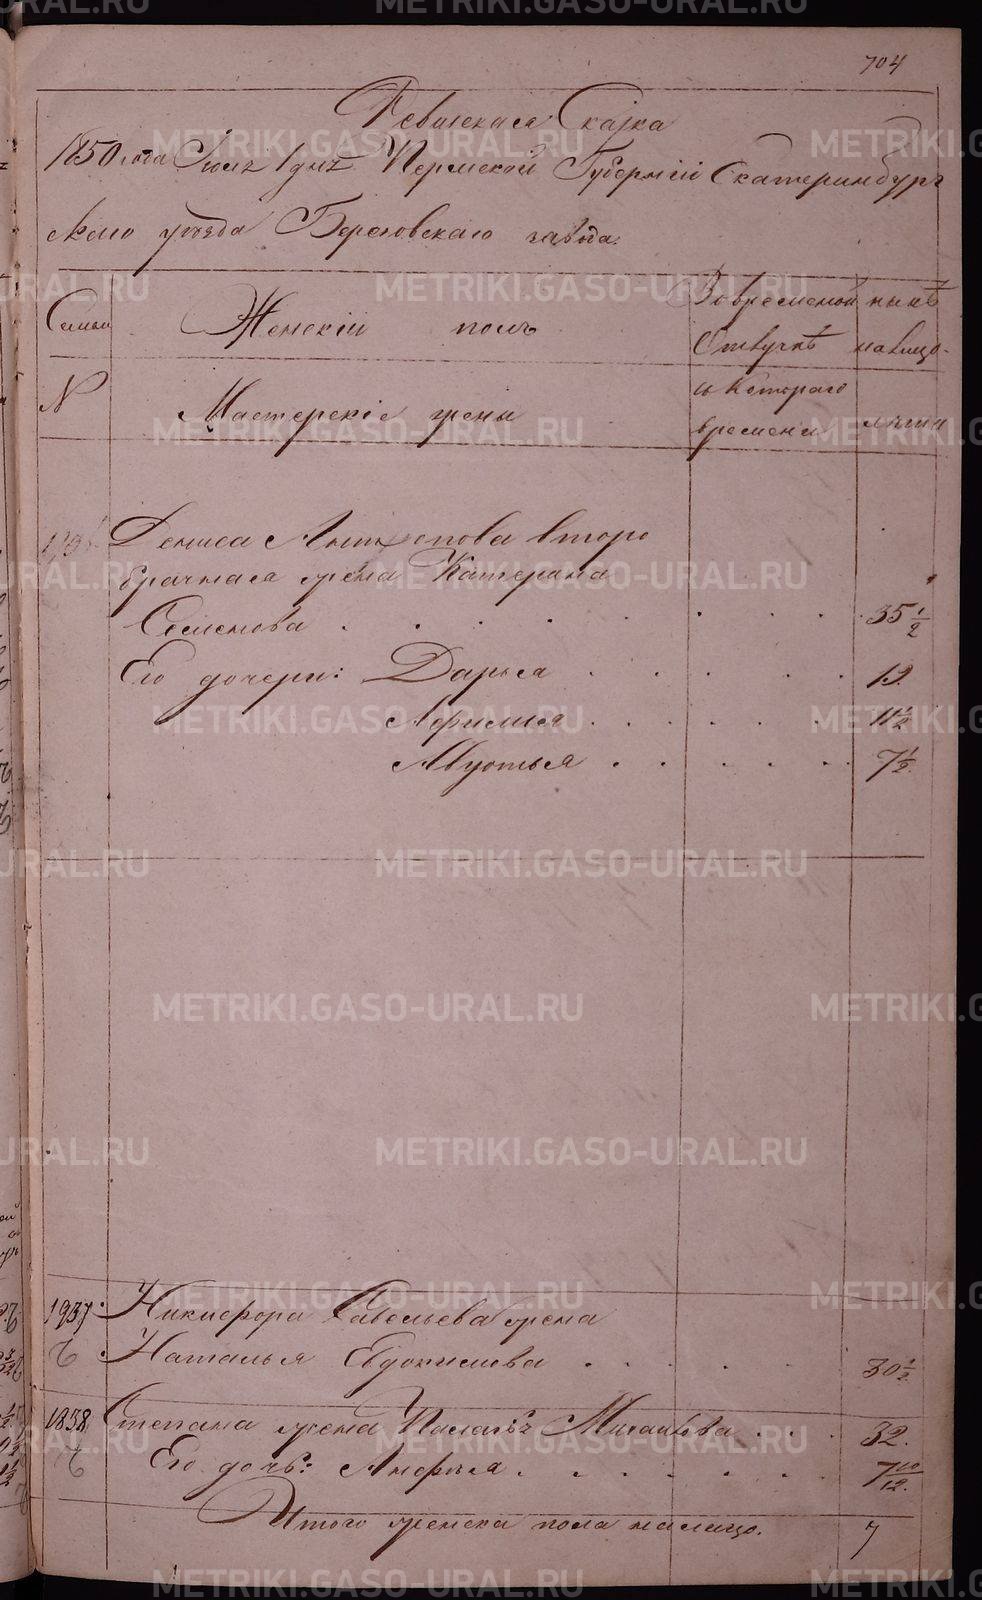 704
Ревизская Сказка
1850 года Июль 1 дня Пермской Губернии Екатеринбург
скаго уезда Березовскаго завода.
Семьи Женский полъ Во временной отлучке ныне налицо
N Мастерские жены и котораго времени лета
Дениса Антипова второ
брачная жена Катерина
Семенова . . . . . . 35 1/2
Его дочери: Дарья . . . . 12
Афимия . . . . 11 1/2
Авдотья . . . . 7 1/2
1937. Никифора Савельева жена
Наталья Евдокимова . . . . 30 1/2
1858 Степана жена Палагея Михайлова . . . 32.
Его дочь: Анфиса . . . . . . 7 10/12.
Итого женска пола налицо. 7
METRIKI.GASO-URAL.RU